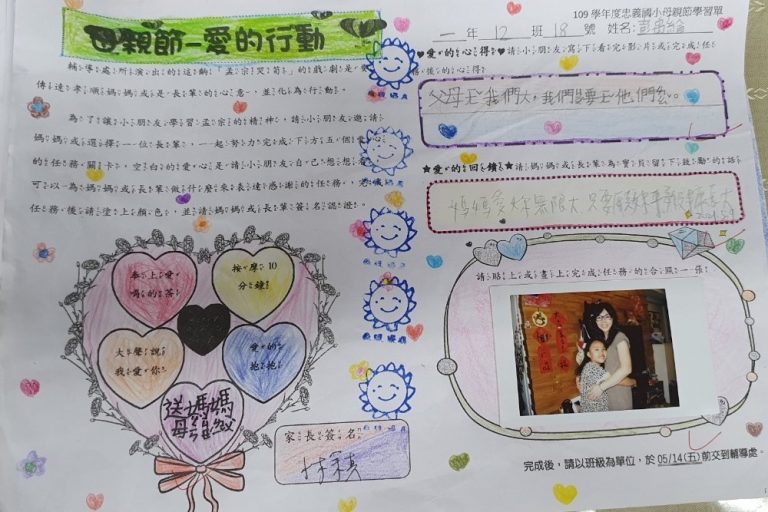 109 學年度忠義國小母親節學習單
母親節－愛的行動
一年 12 班 18 號 姓名:
輔導處所演出的這齣「孟宗哭筍」的戲劇是要
傳達孝順媽媽或是長輩的心意，並化為行動。
為了讓小朋友學習孟宗的精神，請小朋友邀請
媽媽或選擇一位長輩，一起努力完成下方五個愛
的任務關卡，空白的愛心是請小朋友自己想想看
可以為媽媽或長輩做什麼來表達感謝的任務，完成
任務後請塗上顏色，並請媽媽或長輩簽名認證。
奉上愛
嗎的茶
按摩 10
分鐘
大聲說
我愛你
愛的
抱抱
送媽媽
家長簽名
♥愛的心得♥請小朋友寫下看完影片或完成任
務後的心得
父母
我們大，我們
他們
★愛的回饋★請媽媽或長輩為寶貝留下鼓勵的話
媽媽愛妳無限大
請貼上或畫上完成任務的合照一張！
完成後，請以班級為單位，於 05/14(五)前交到輔導處。